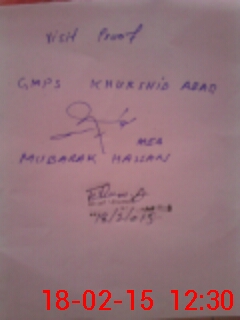 Visit Proof
GMPS KHURSHID ABAD
MEA
MUBARAK HASSAN
18/2/015
18-02-15 12:30